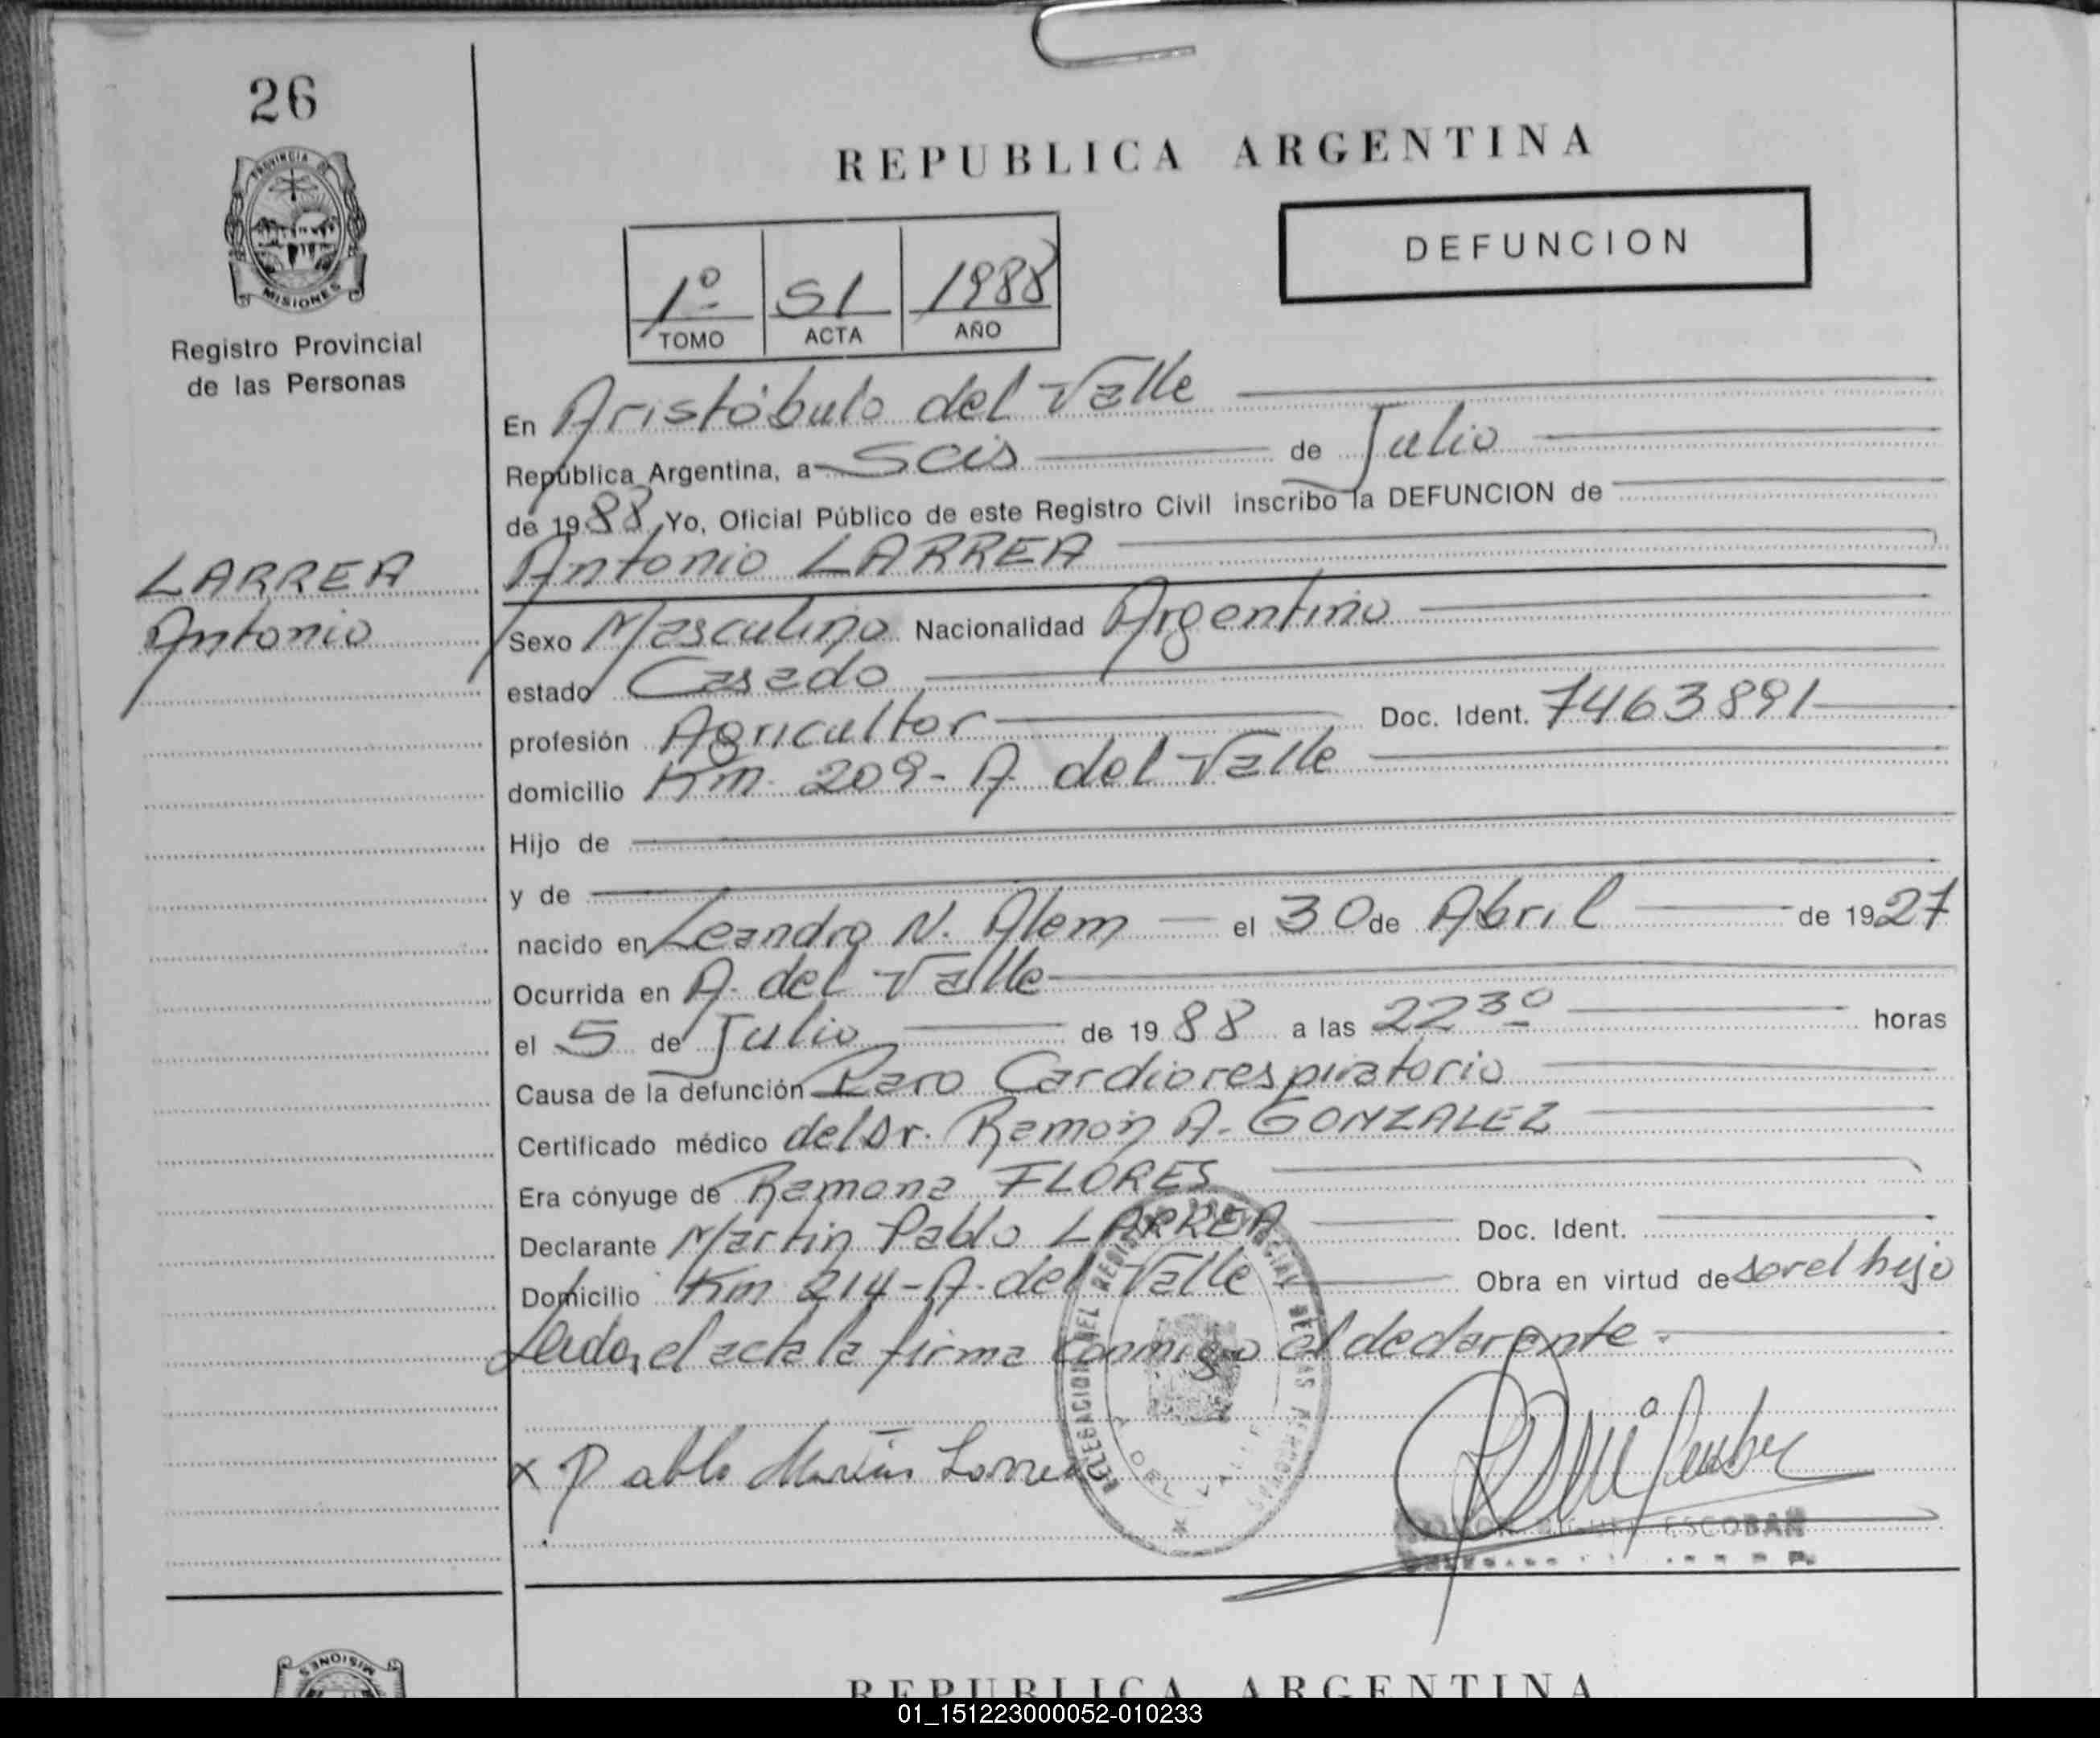 26
REPUBLICA ARGENTINA
PROVINCIA DE
MISIONES
Registro Provincial
de las Personas
DEFUNCION
1º 51 1988
TOMO ACTA AÑO
En Aristóbulo del Valle
República Argentina, a Seis de Julio
de 1988 Yo, Oficial Público de este Registro Civil inscribo la DEFUNCION de
LARREA
Antonio
Antonio LARREA
Sexo Masculino Nacionalidad Argentino
estado Casado
profesión Agricultor Doc. Ident. 7463891
domicilio Km 209- A. del Valle
Hijo de
y de
nacido en Leandro N. Alem el 30 de Abril de 1927
Ocurrida en A. del Valle
el 5 de Julio de 1988 a las 22 30 horas
Causa de la defunción Paro Cardiorespiratorio
Certificado médico del Dr. Ramón A. GONZALEZ
Era cónyuge de Ramona FLORES
Declarante Martin Pablo LARREA Doc. Ident.
Domicilio Km 214-A. del Valle Obra en virtud de ser el hijo
Leida el acta la firma conmigo el declarante.
DELEGACION DEL REGISTRO PROVINCIAL DE LAS PERSONAS
A. DEL VALLE
x Pablo Larrea
ESCOBAR
MISIONES
REPUBLICA ARGENTINA
01_151223000052-010233